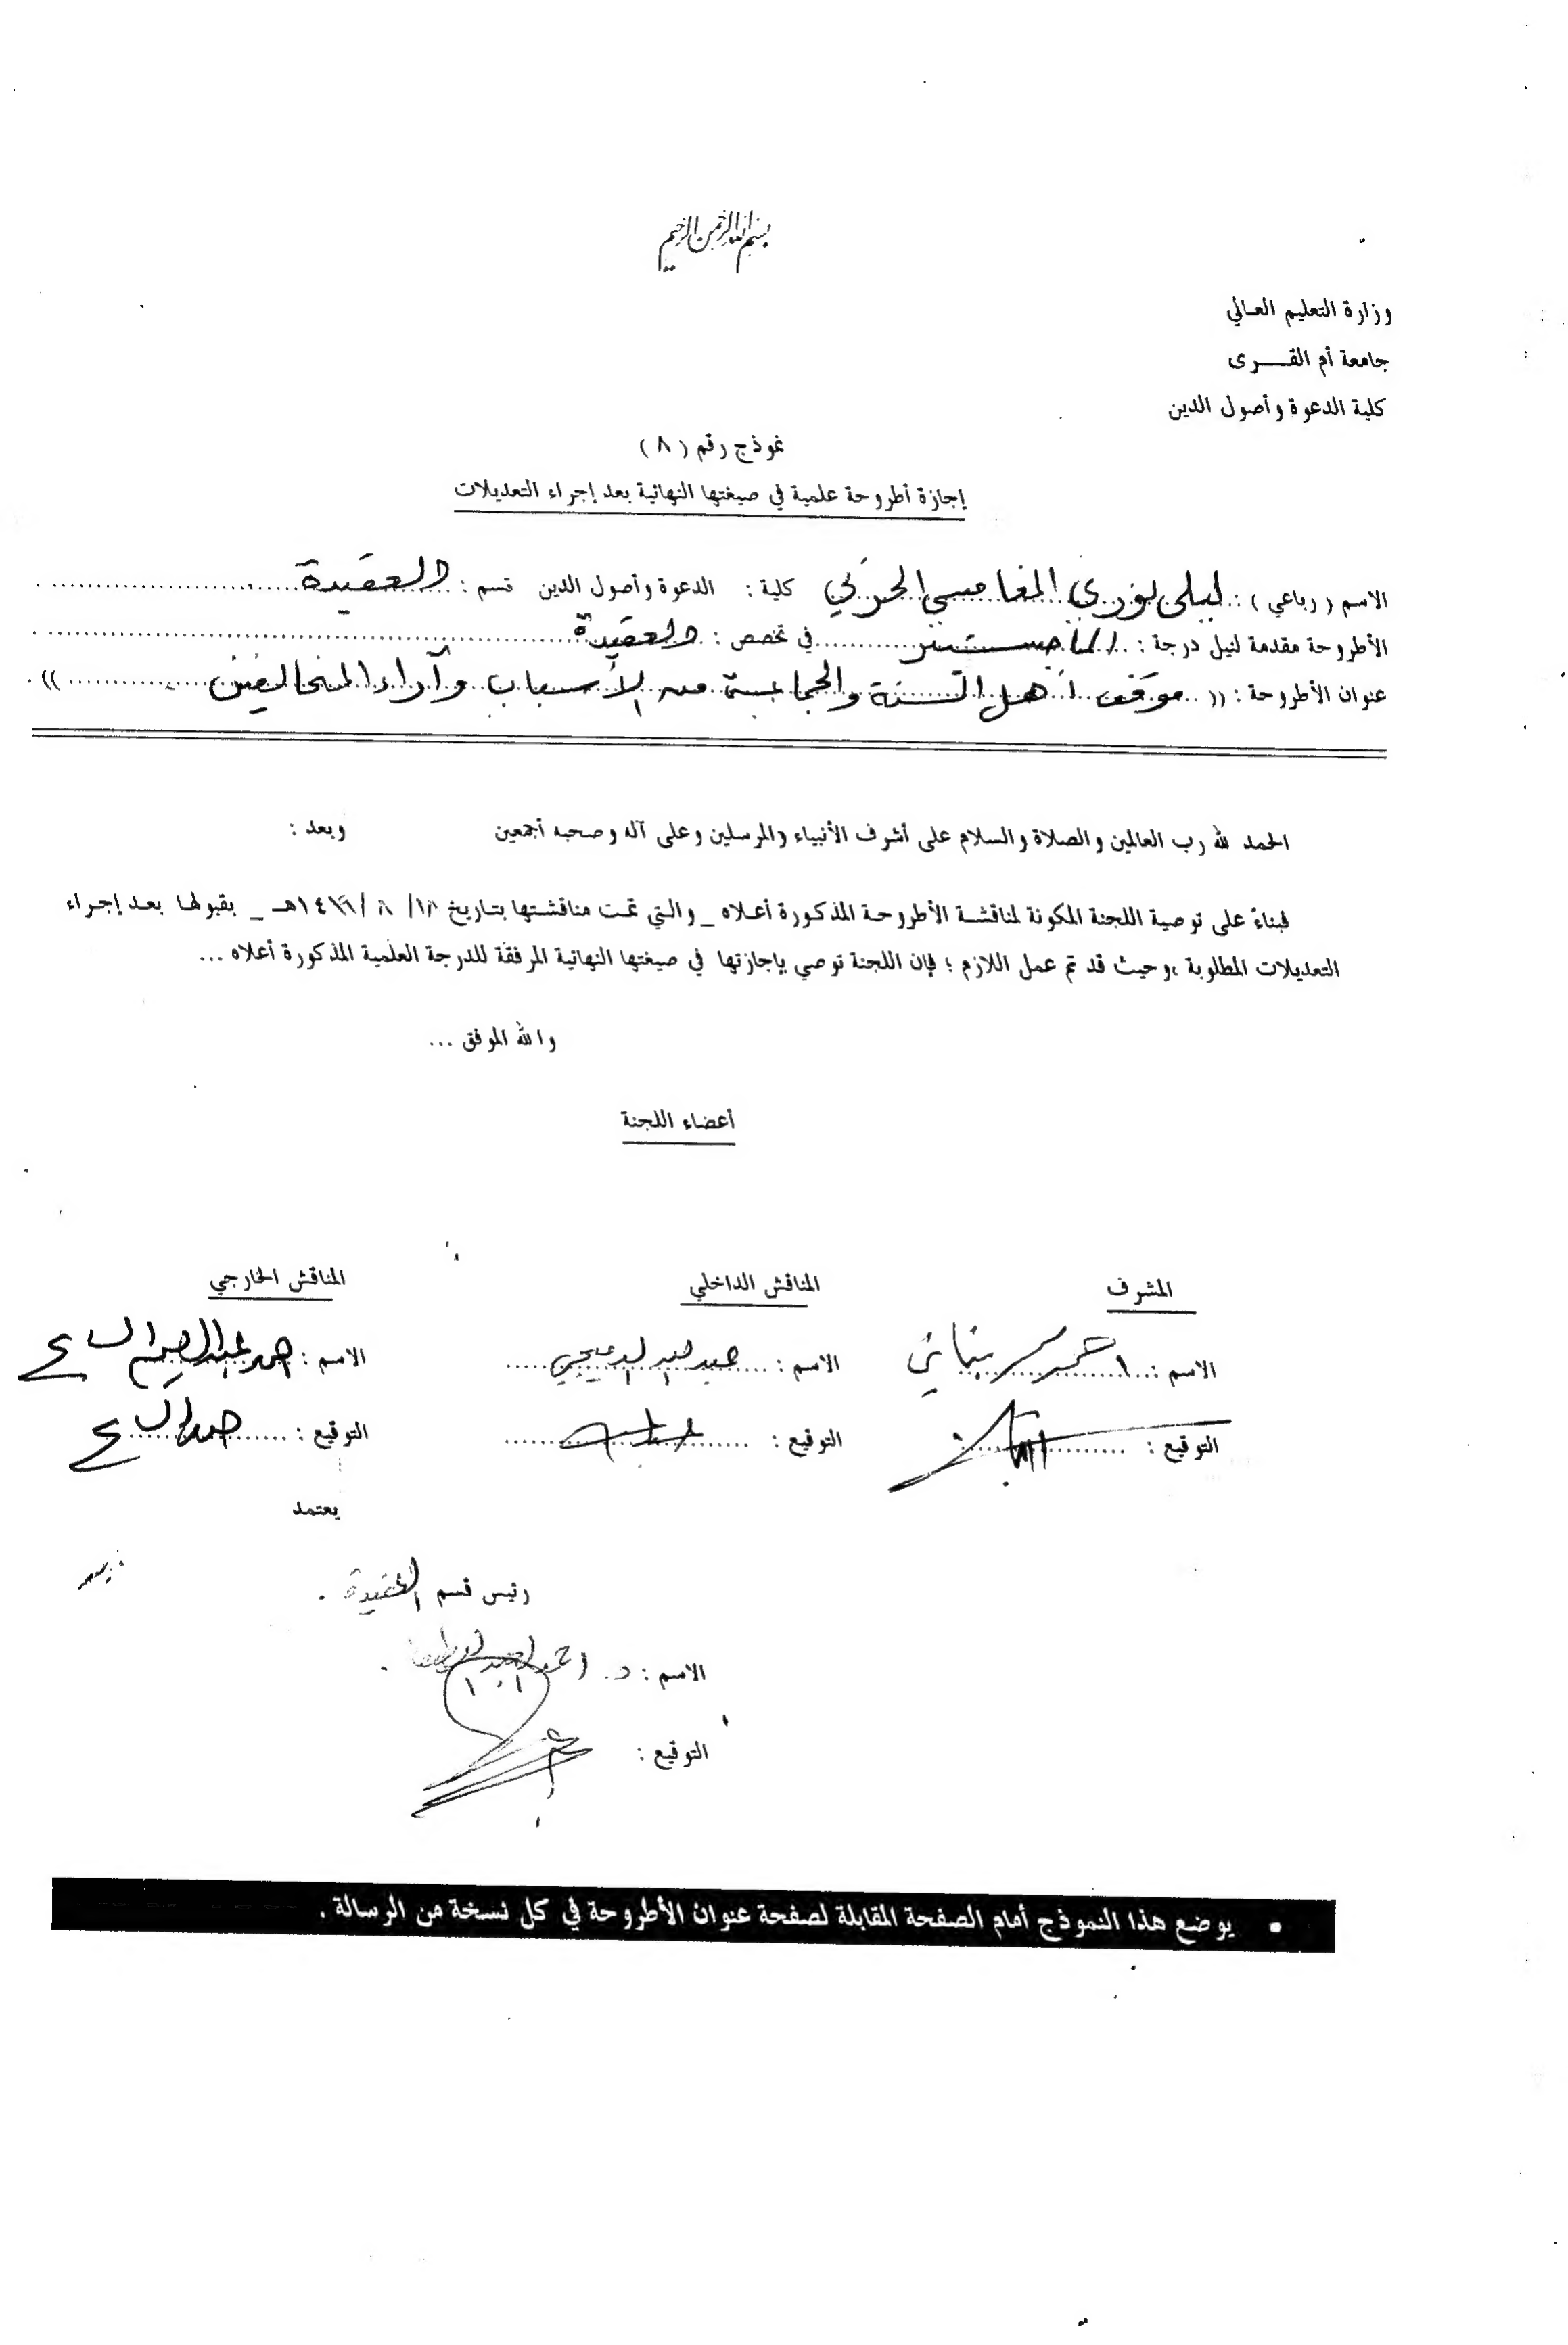 بسم الله الرحمن الرحيم
وزارة التعليم العالي
جامعة أم القـــرى
كلية الدعوة وأصول الدين
نموذج رقم ( ٨ )
إجازة أطروحة علمية في صيغتها النهائية بعد إجراء التعديلات
الاسم ( رباعي ) : ليلى نوري المغامسي الحربي كلية : الدعوة وأصول الدين قسم : العقيدة
الأطروحة مقدمة لنيل درجة : الماجستير في تخصص : العقيدة
عنوان الأطروحة : (( موقف أهل السنة والجماعة من الأسباب وآراء المخالفين ))
الحمد لله رب العالمين والصلاة والسلام على أشرف الأنبياء والمرسلين وعلى آله وصحبه أجمعين وبعد :
فبناءً على توصية اللجنة المكونة لمناقشة الأطروحة المذكورة أعلاه _ والتي تمت مناقشتها بتاريخ ١٨/ ٨ / هـ _ بقبولها بعد إجراء
التعديلات المطلوبة ،وحيث قد تم عمل اللازم ؛ فإن اللجنة توصي بإجازتها في صيغتها النهائية المرفقة للدرجة العلمية المذكورة أعلاه ...
والله الموفق ...
أعضاء اللجنة
المشرف المناقش الداخلي المناقش الخارجي
الاسم : الاسم : الاسم :
التوقيع : التوقيع : التوقيع :
يعتمد
رئيس قسم العقيدة .
الاسم : د.
التوقيع :
• يوضع هذا النموذج أمام الصفحة المقابلة لصفحة عنوان الأطروحة في كل نسخة من الرسالة .